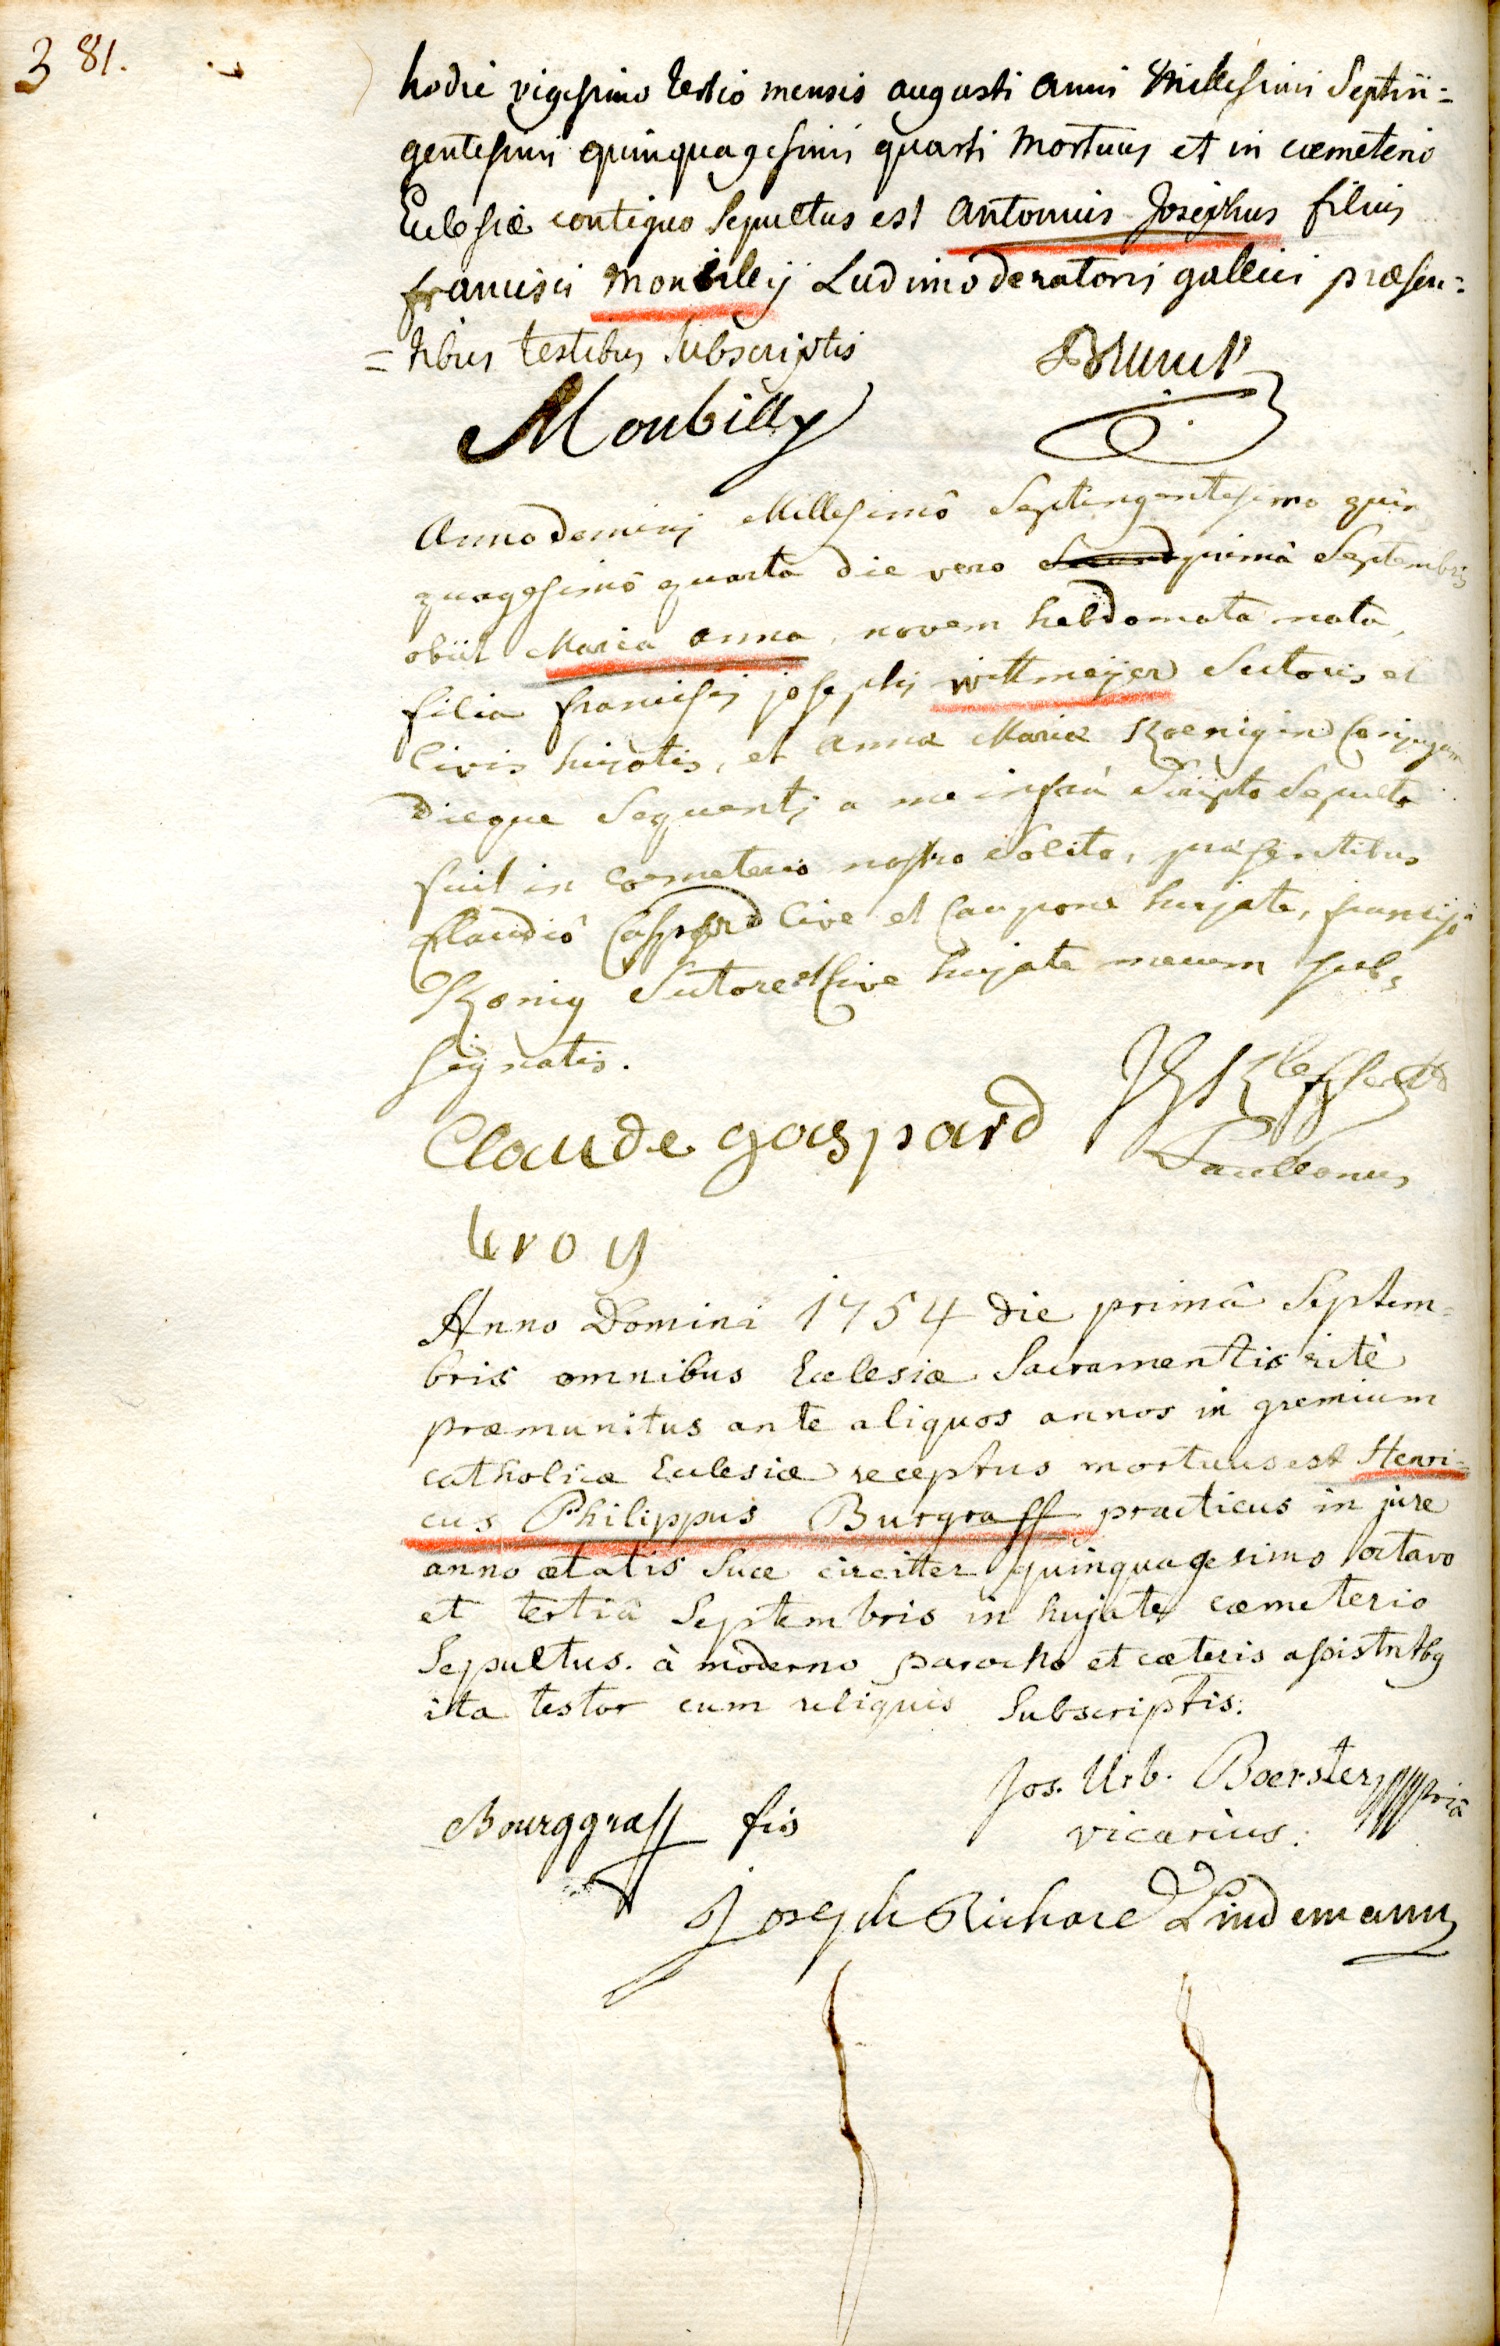 381.
hodie vigesimo tertio mensis augusti anni Millesimi Septin=
gentesimi quinquagesimi quarti mortuus et in cœmeterio
Ecclesiæ contiguo sepultus est Antonius Josephus filius
francisci Monbilly Ludimoderatoris gallici præsen=
=tibus testibus subscriptis
Brunet
Monbilly
Anno domini Millesimô Septingentesimo quin
quagesimô quarto die vero primâ Septembris
obiit Maria anna, novem hebdomata nata,
filia francisci josephi wittmeijer Sutoris et
Civis hujatis, et Anna Mariæ Koenigin Conjugum
dieque Sequenti a me infrà Scripto Sepulta
fuit in Coemeterio nostro Solito, præsentibus
Claudiô Caspard Cive et Caupone hujate, francisco
König Sutore et Cive hujate mecum subs
signatis.
Claude gaspard
Sacellanus
Anno Domini 1754 die primâ Septem=
bris omnibus Ecclesiæ Sacramentis ritè
præmunitus ante aliquos annos in gremium
catholicæ Ecclesiæ receptus mortuus est Henri=
cus Philippus Burgraff practicus in jure
anno ætatis suæ circitter quinquagesimo octavo
et tertiâ Septembris in hujate cæmeterio
Sepultus. à moderno parocho et cæteris assistntbg
ita testor cum reliquis Subscriptis.
Jos. Urb. Boerster
vicarius.
Bourggraff fis
Joseph Richard Lindemann